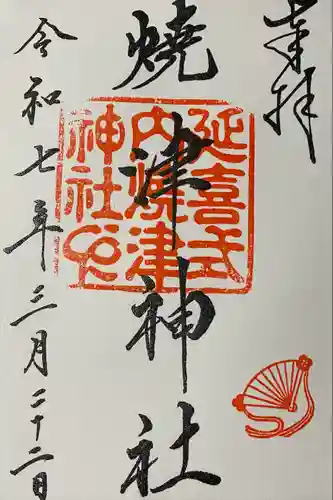 奉拝
燒津神社
延喜式
内焼津
神社之印
令和七年三月二十二日